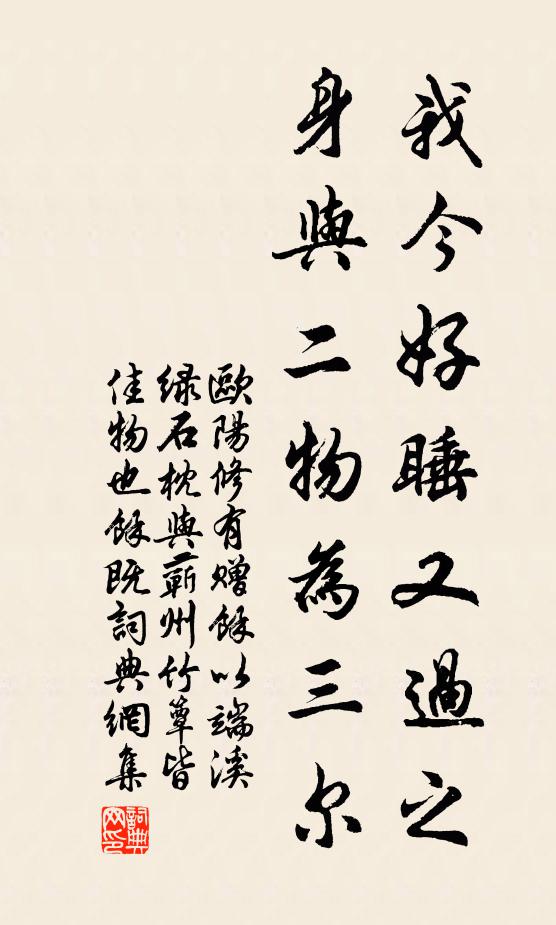 我今好睡又過之
身與二物為三尔
歐陽修有贈餘以端溪
緑石枕與蘄州竹簟皆
佳物也餘既詞典網集
詞典网印